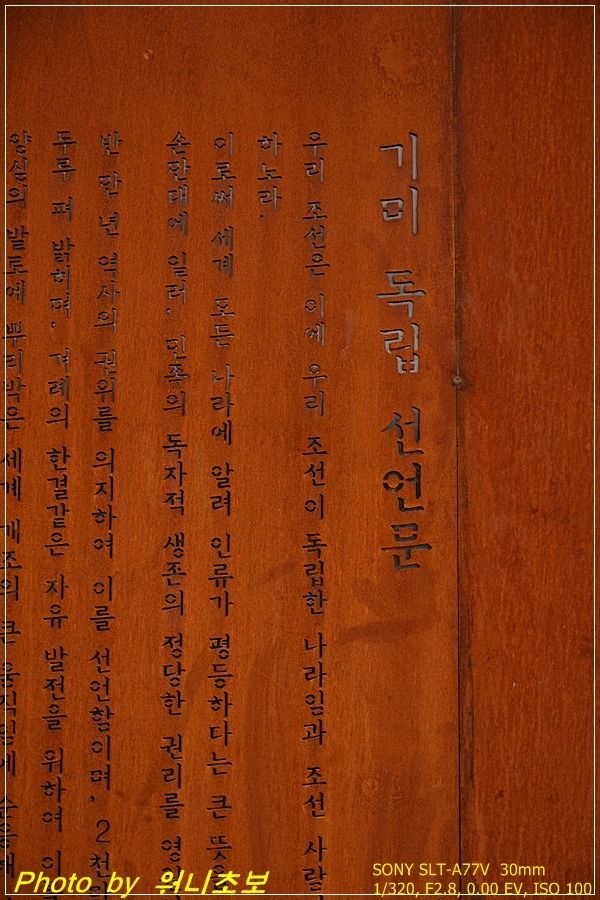 기미 독립 선언문
우리 조선은 이에 우리 조선이 독립한 나라임과 조선 사람
하노라.
이로써 세계 모든 나라에 알려 인류가 평등하다는 큰 뜻을
손만대에 일러, 민족의 독자적 생존의 정당한 권리를
반 만 년 역사의 권위를 의지하여 이를 선언함이며, 2천
두루 펴 밝히며, 겨레의 한결같은 자유 발전을 위하여
양심의 발로에 뿌리박은 세계 개조의 큰 움직임에
Photo by 워니초보
SONY SLT-A77V 30mm
1/320, F2.8, 0.00 EV, ISO 100